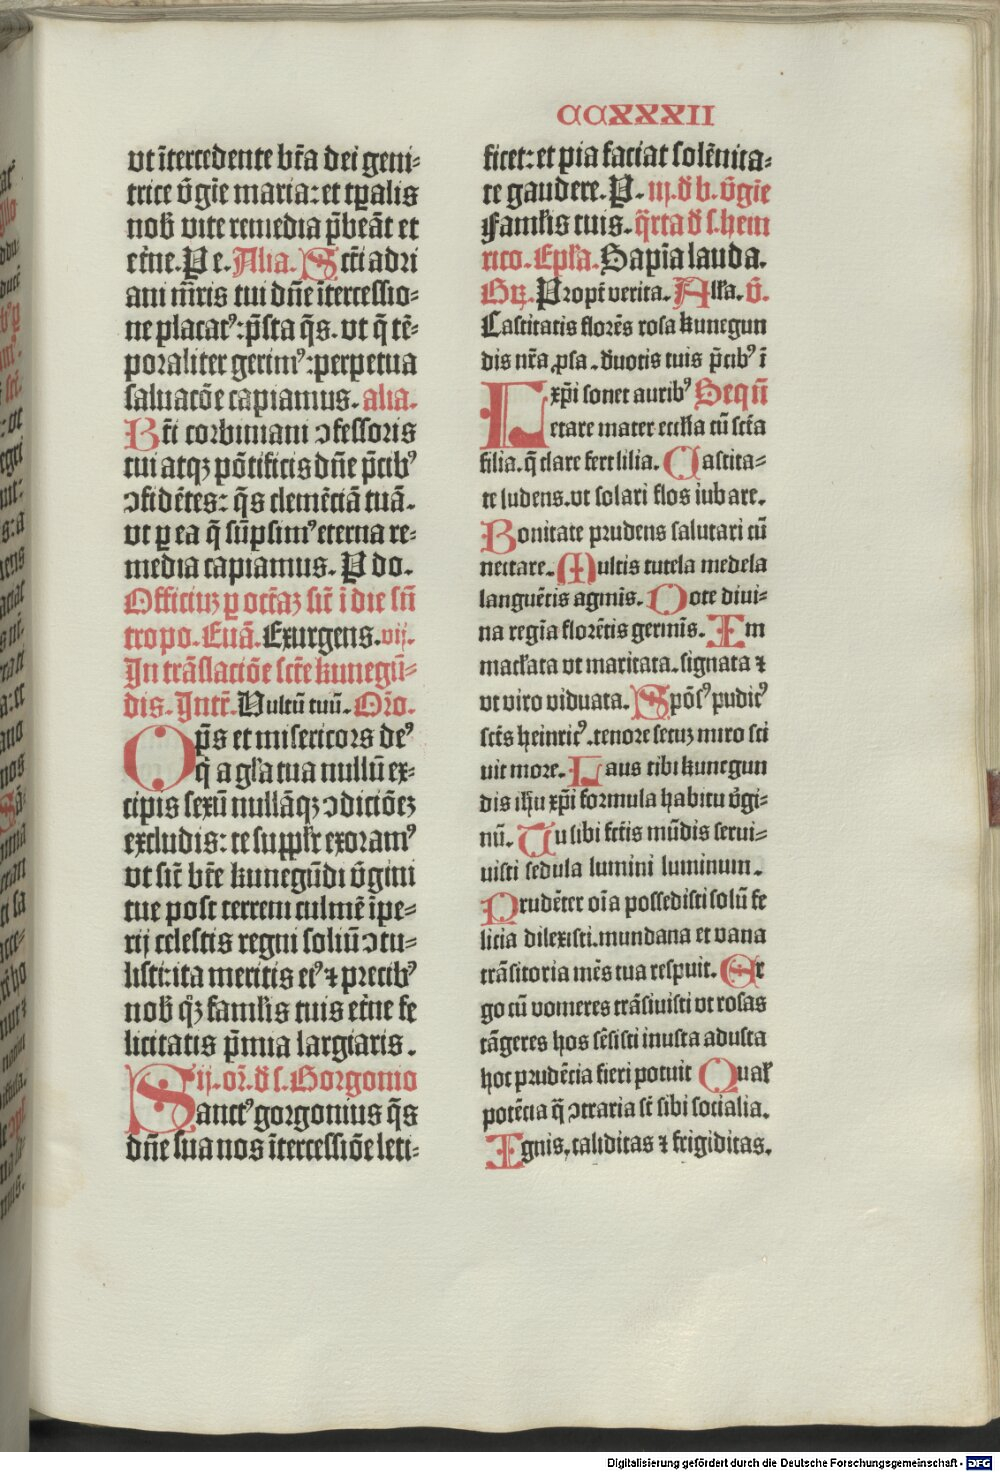 CCXXXII
vt ītercedente bt̄a dei geni⸗
trice v̄gīe maria: et tꝑalis
nob̄ vite remedia p̄beāt et
et̄ne. P e. Alia. Sct̄i adri
ani m̄ris tui dn̄e ītercessio⸗
ne placatꝰ: p̄sta q̄s. vt q̄ tē⸗
poraliter gerimꝰ: perpetua
saluacōe capiamus. alia.
Bt̄i corbiniani ↄfessoris
tui atqꝫ pōtificis dn̄e p̄cibꝰ
ↄfidētes: q̄s clemēciā tuā.
vt ꝑ ea q̄ sūpsimꝰ eterna re⸗
media capiamus. P do.
Officiuꝫ ꝑ octa꜀ꝫ sic̄ ī die sūt
tropo. Euā. Exurgens. vij.
In trāslaciōe sct̄e kunegū⸗
dis. Intr̄. Vultū tuū. Or̄o.
Op̄s et misericors deꝰ
q̄ a gl̄a tua nullū ex⸗
cipis sexū nullāqꝫ ↄdiciōeꝫ
excludis: te supp̄lr exoramꝰ
vt sic̄ bt̄e kunegūdi v̄gini
tue post terreni culmē īpe⸗
rij celestis regni soliū ↄtu⸗
listi: ita meritis eiꝰ ⁊ precibꝰ
nob̄ qꝫ famĺis tuis et̄ne fe
licitatis p̄mia largiaris.
ij. or̄. d̄ s. Gorgonio
Sanctꝰ gorgonius q̄s
dn̄e sua nos ītercessiōe leti⸗
ficet: et pia faciat solēnita⸗
te gaudere. P. iij. d̄ b. v̄gīe
Famĺis tuis. q̄rta d̄ s. hein
rico. Epĺa. Sapīa lauda.
Gr̄. Propt̄ verita. Alĺa. v̄.
Castitatis florēs rosa kunegun
dis nr̄a ꝓsa. d̄uotis tuis p̄cibꝰ ī
xp̄i sonet auribꝰ Seqn̄
Letare mater eccĺia cū sct̄a
filia. q̄ clare fert lilia. Castita⸗
te ludens. vt solari flos iubare.
Bonitate prudens salutari cū
nectare. Multis tutela medela
languētis agmīs. Dote diui⸗
na regīa florētis germīs. Im
maculata vt maritata. signata ⁊
vt viro viduata. Spōsꝰ pudicꝰ
sct̄s heinricꝰ. tenore secuꝫ miro sci
uit more. Laus tibi kunegun
dis ih̄u xp̄i formula habitu v̄gi⸗
nū. Tu sibi fct̄is mūdis serui⸗
uisti sedula lumini luminum.
Prudēter oīa possedisti solū fe
licia dilexisti. mundana et vana
trāsitoria mēs tua respuit. Er
go cū vomeres trāsiuisti vt rosas
tāgeres hos sēsisti inusta adusta
hoc prudēcia fieri potuit Quaĺ
potēcia q̄ ↄtraria sic̄ sibi socialia.
Ignis, caliditas ⁊ frigiditas.
Digitalisierung gefördert durch die Deutsche Forschungsgemeinschaft - DFG